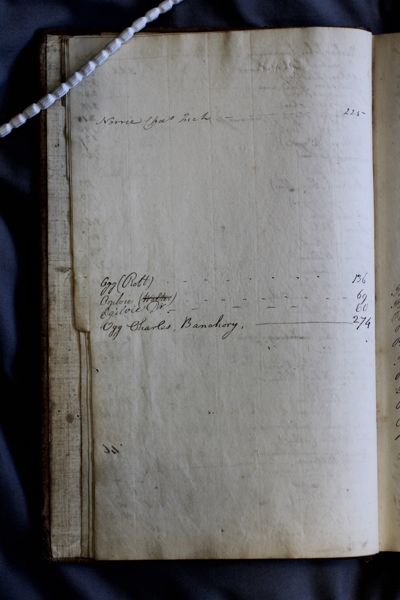 Norrie Chas Inch - - 225
Ogg (Robt) - - - - - 136
Ogilvie (Walter) - - - - - 69
Ogilvie Dr - - - - 60
Ogg Charles, Banchory, 274